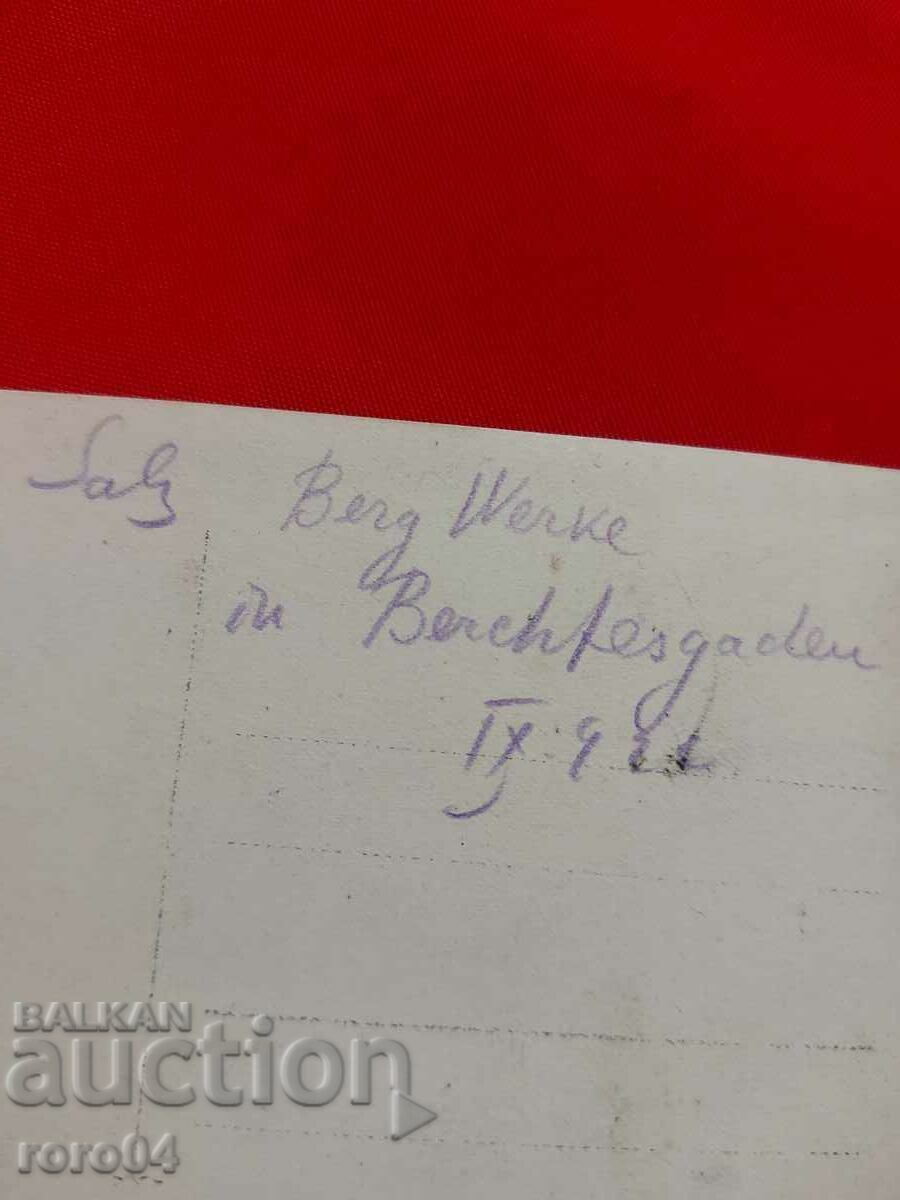 Salz Berg Werke
in Berchtesgaden
IX
BALKAN
auction
roro04